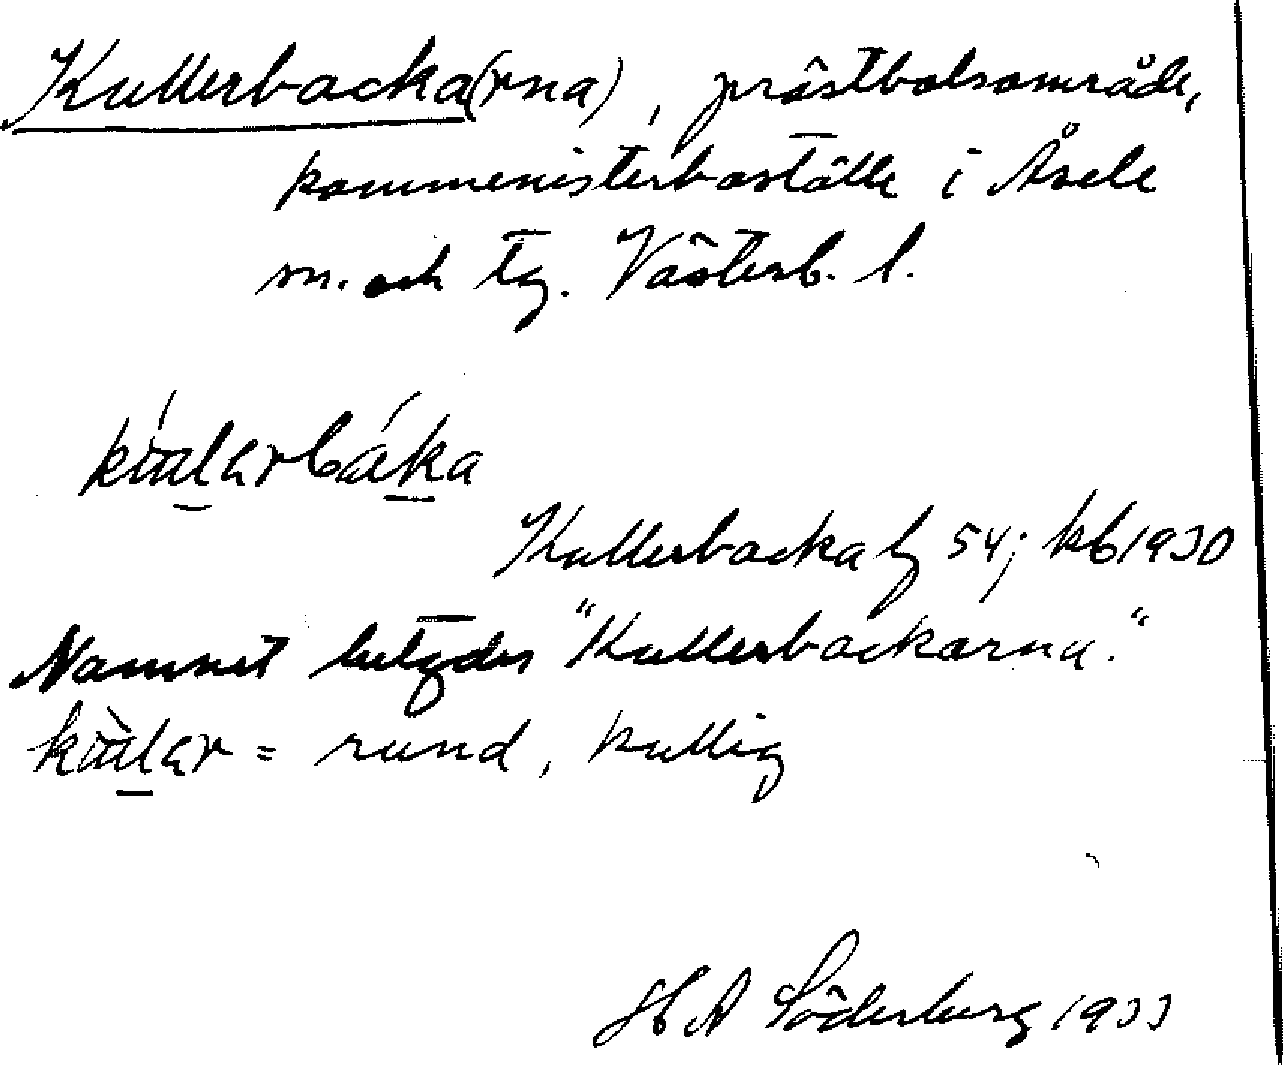 Kullerbacka(rna), prästbolsområde,
komministerboställe i Åsele
sn. och tg. Västerb. l.
Kullerbacka lf 54; kb 1930
Namnet betyder "Kullerbackarna."
= rund, kullig
H A Söderberg 1933